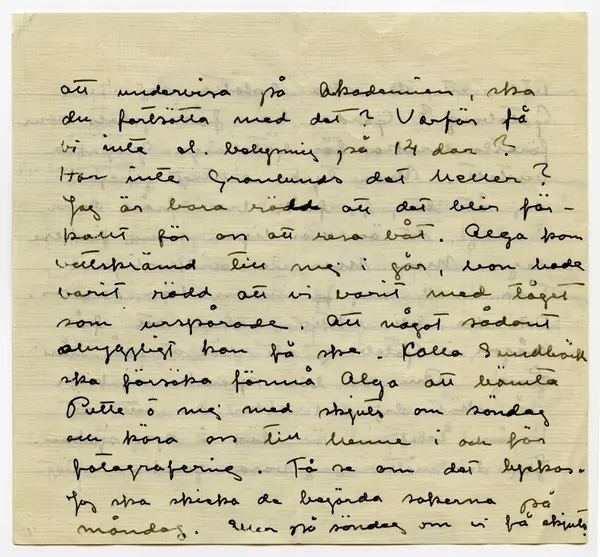 att undervisa på Akademien, ska
du fortsätta med det? Varför få
vi inte el. belysning på 14 dar?
Har inte Granlunds det heller?
Jag är bara rädd att det blir för-
kallt för oss att resa båt. Alga kom
vettskrämd till mej i går, hon hade
varit rädd att vi varit med tåget
som urspårade. Att något sådant
ohyggligt kan få ske. Kalla Sundbäck
ska försöka förmå Alga att hämta
Putte o mej med skjuts om söndag
och köra oss till henne i och för
fotografering. Få se om det lyckas.
Jag ska skicka de begärda sakerna på
måndag. Eller på söndag om vi få skjuts.